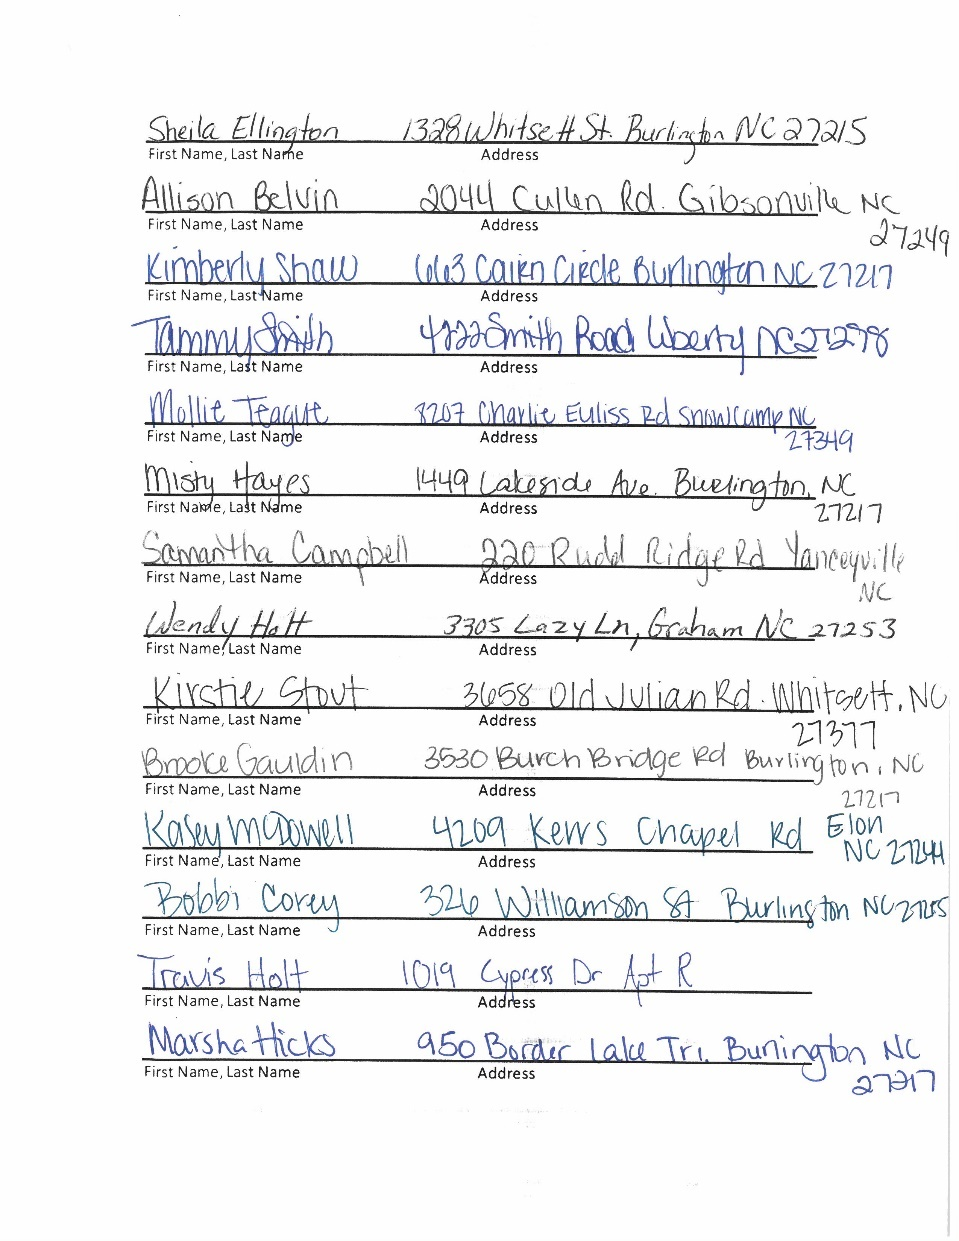 Sheila Ellington 1328 Whitsett St. Burlington NC 27215
First Name, Last Name Address
Allison Belvin 2044 Cullen Rd. Gibsonville NC
First Name, Last Name Address 27249
Kimberly Shaw 663 Cairn Circle Burlington NC 27217
First Name, Last Name Address
Tammy Smith 4222 Smith Road Liberty NC 27298
First Name, Last Name Address
Mollie Teague 8207 Charlie Euliss Rd Snow Camp NC
First Name, Last Name Address 27349
Misty Hayes 1449 Lakeside Ave. Burlington, NC
First Name, Last Name Address 27217
Samantha Campbell 220 Rudd Ridge Rd Yanceyville
First Name, Last Name Address NC
Wendy Holt 3305 Lazy Ln, Graham NC 27253
First Name, Last Name Address
Kirstie Stout 3658 Old Julian Rd. Whitsett, NC
First Name, Last Name Address 27377
Brooke Gauldin 3530 Burch Bridge Rd Burlington, NC
First Name, Last Name Address 27217
Kasey McDowell 4209 Kerrs Chapel Rd Elon
NC 27244
First Name, Last Name Address
Bobbi Corey 326 Williamson St Burlington NC 27215
First Name, Last Name Address
Travis Holt 1019 Cypress Dr Apt R
First Name, Last Name Address
Marsha Hicks 950 Border Lake Tri. Burlington NC
First Name, Last Name Address 27217